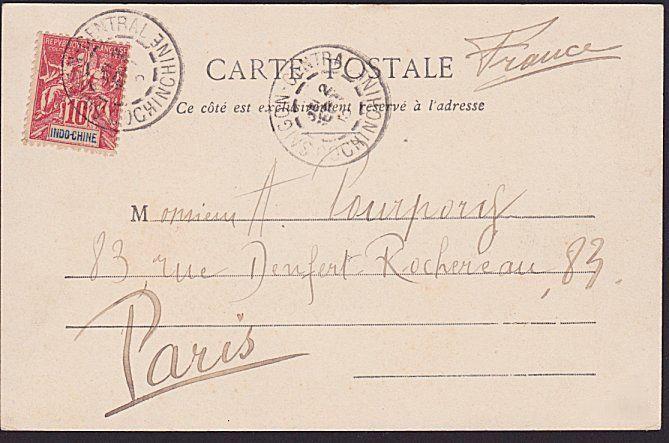 REPUBLIQUE FRANCAISE
10
INDO-CHINE
CENTRAL
COCHINCHINE
SAIGON-CENTRAL
COCHINCHINE
France
CARTE POSTALE
Ce côté est exclusivement réservé à l'adresse
Monsieur A. Pourporg
83 rue Denfert-Rochereau, 83.
Paris